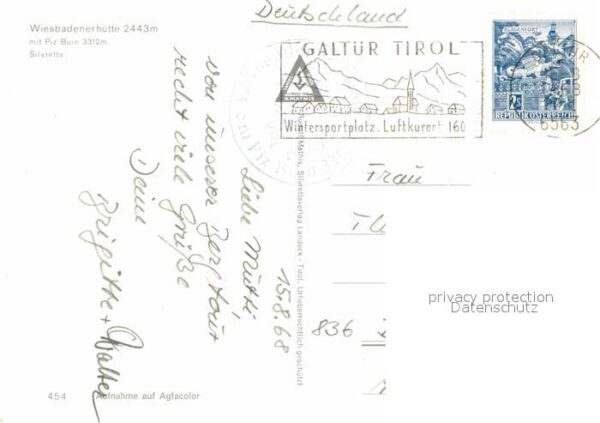 Wiesbadenerhütte 2443m
mit Piz Buin 3312m.
Silvretta
Deutschland
GALTÜR TIROL
Wintersportplatz. Luftkurort 160
KLAGENFURT
REPUBLIK ÖSTERREICH
6563
15.8.68
Liebe Mutti
von unserer Bergtour
recht viele Grüße
Deine
Brigitte + Walter
Mathis, Silvrettaverlag Landeck - Tirol. Urheberrechtlich geschützt
Frau
836
privacy protection
Datenschutz
454 Aufnahme auf Agfacolor